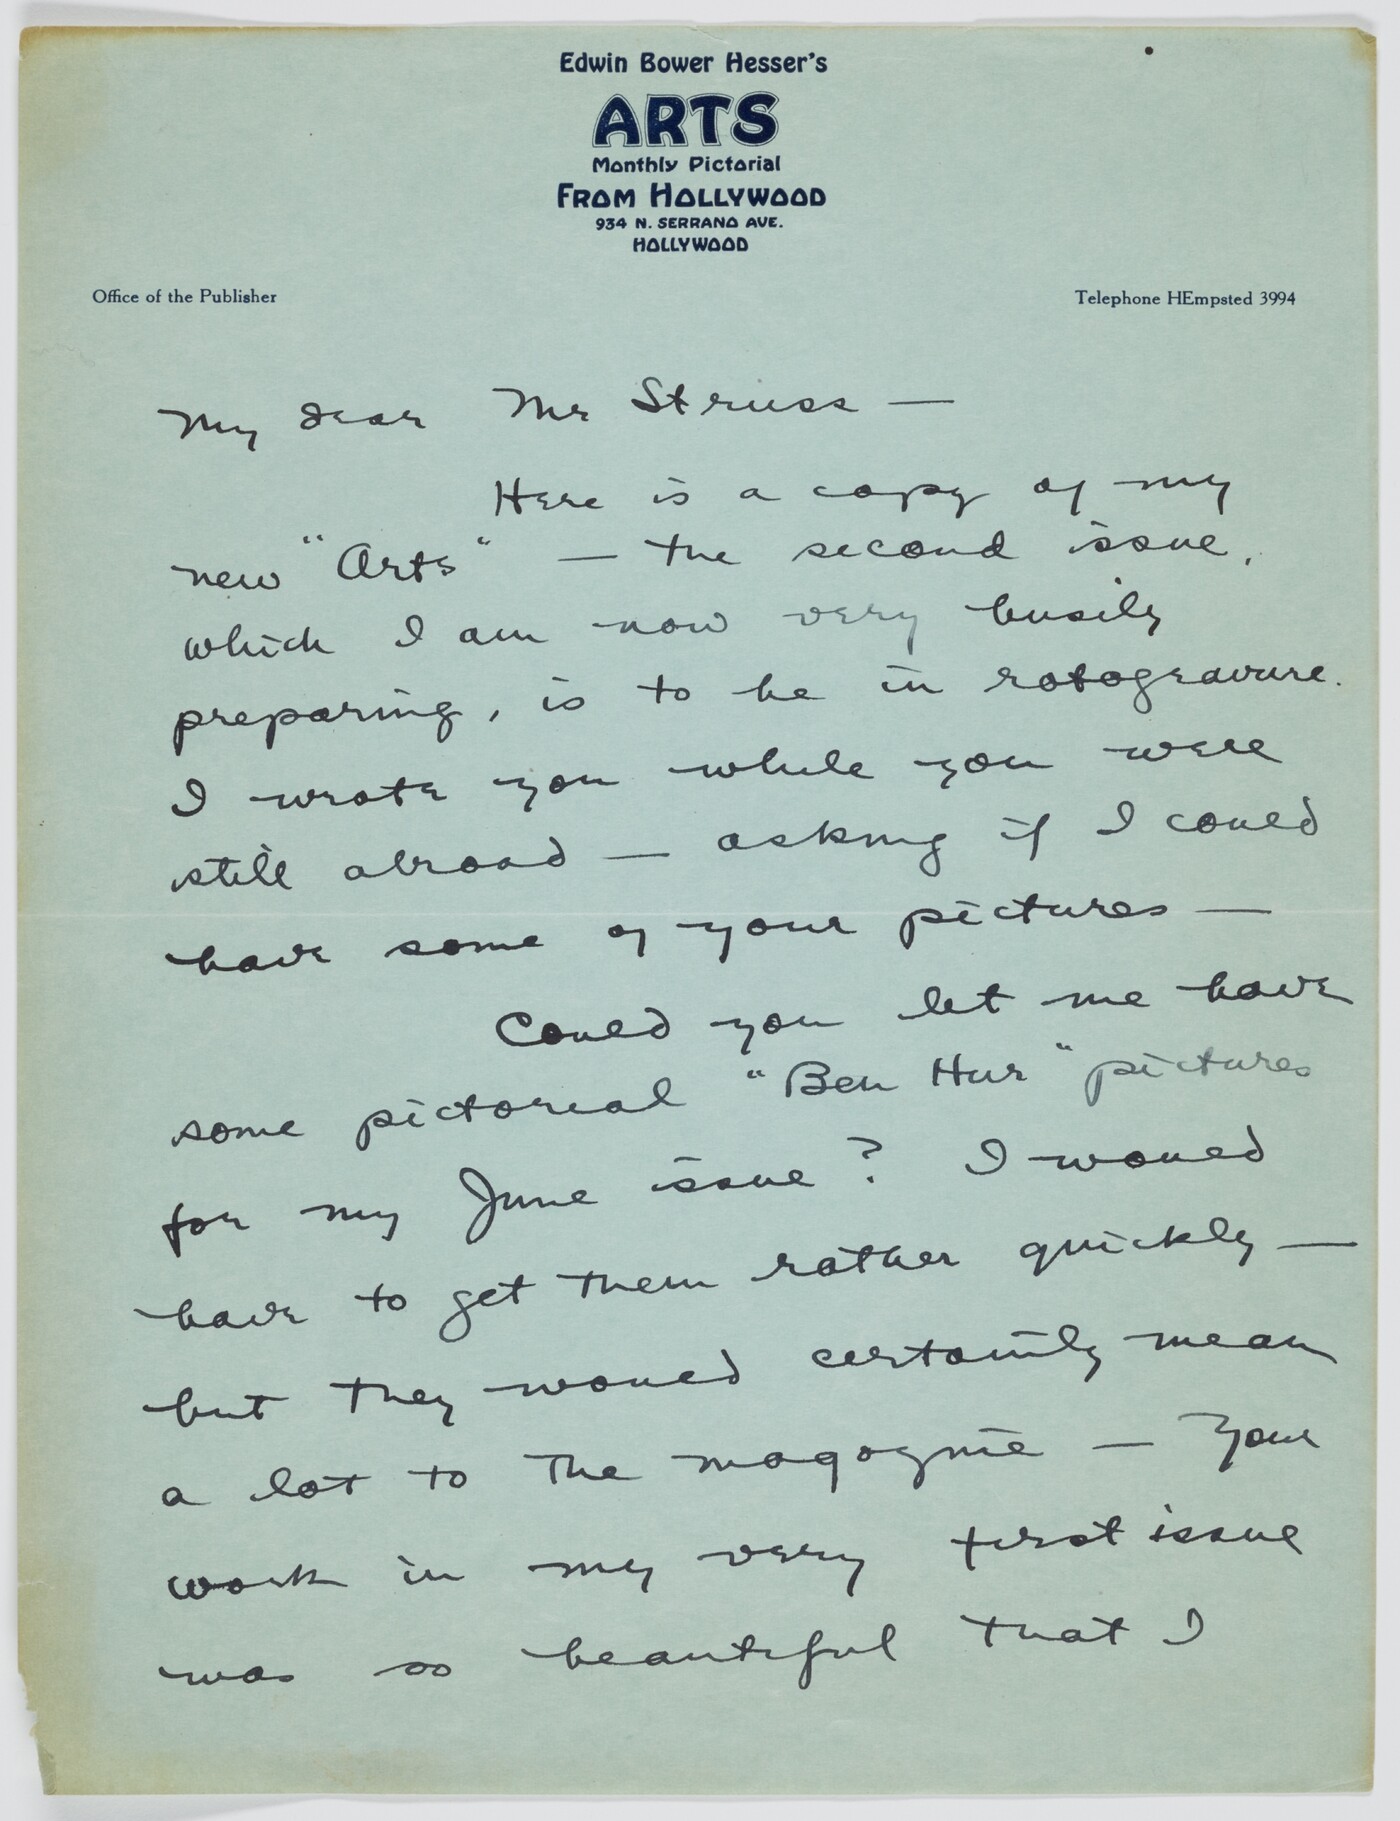 Edwin Bower Hesser's
ARTS
Monthly Pictorial
FROM HOLLYWOOD
934 N. SERRANO AVE.
HOLLYWOOD
Office of the Publisher
Telephone HEmpsted 3994
My dear Mr Struss —
Here is a copy of my
new "Arts" — the second issue,
which I am now very busily
preparing, is to be in rotogravure.
I wrote you while you were
still abroad — asking if I could
have some of your pictures —
Could you let me have
some pictorial "Ben Hur" pictures
for my June issue? I would
have to get them rather quickly —
but they would certainly mean
a lot to the magazine — Your
work in my very first issue
was so beautiful that I